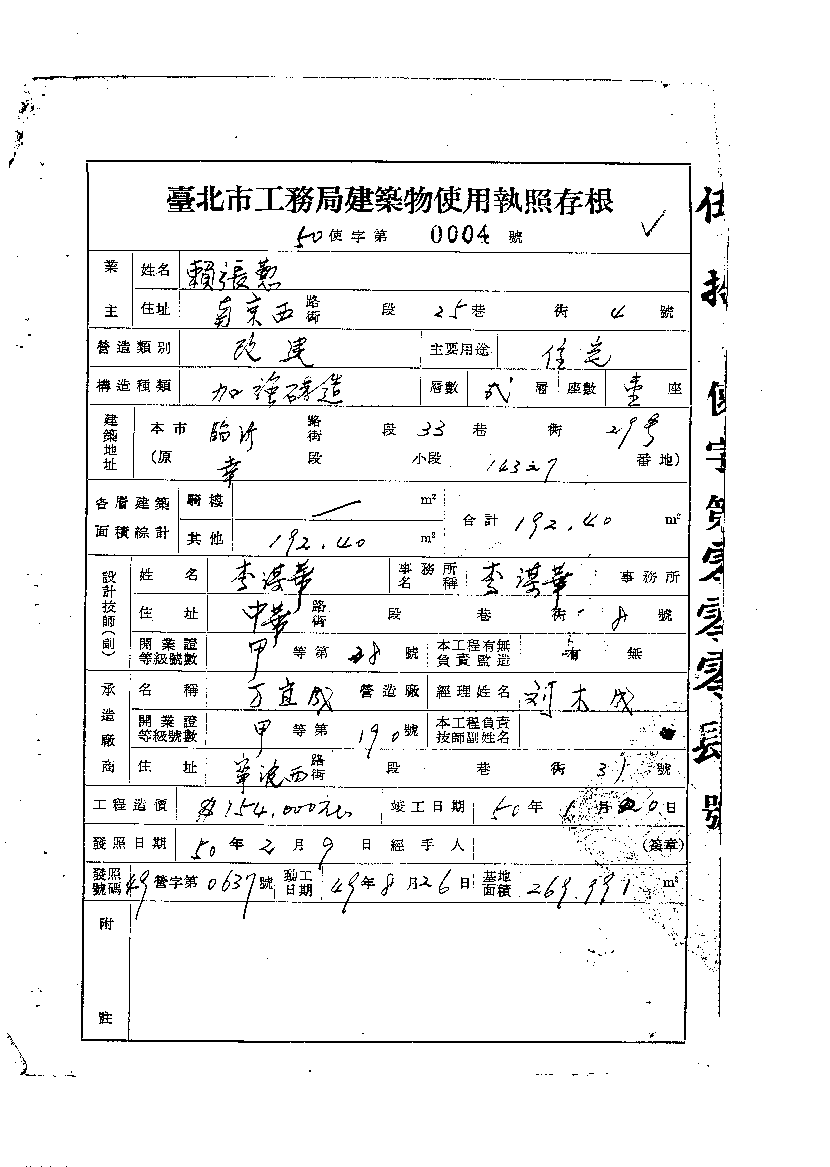 臺北市工務局建築物使用執照存根
50使字第 0004 號
業主 姓名 賴張懃
住址 南京西 路街 段 25巷 街 4 號
營造類別 改建 主要用途 住宅
構造種類 加強磚造 層數 弍 層 座數 壹 座
建築地址 本市 臨沂 路街 段 33 巷 街 29号
(原 幸 段 小段 143-27 番地)
各層建築面積綜計 騎樓 m² 合計 192.40 m²
其他 192.40 m²
設計技師(副) 姓名 李謀華 事務所名稱 李謀華 事務所
住址 中華 路街 段 巷 街 8 號
開業證等級號數 甲 等第 28 號 本工程有無負責監造 有 無
承造廠商 名稱 万宜成 營造廠 經理姓名 刘木成
開業證等級號數 甲 等第 190號 本工程負責技師副姓名
住址 寧波西 路街 段 巷 街 31 號
工程造價 $154,000元 竣工日期 50年 1月 20日
發照日期 50年 2月 9日 經手人 (簽章)
發照號碼 49營字第0637號 動工日期 49年8月26日 基地面積 269.991 m²
附註
伍拾使字第零零零肆號